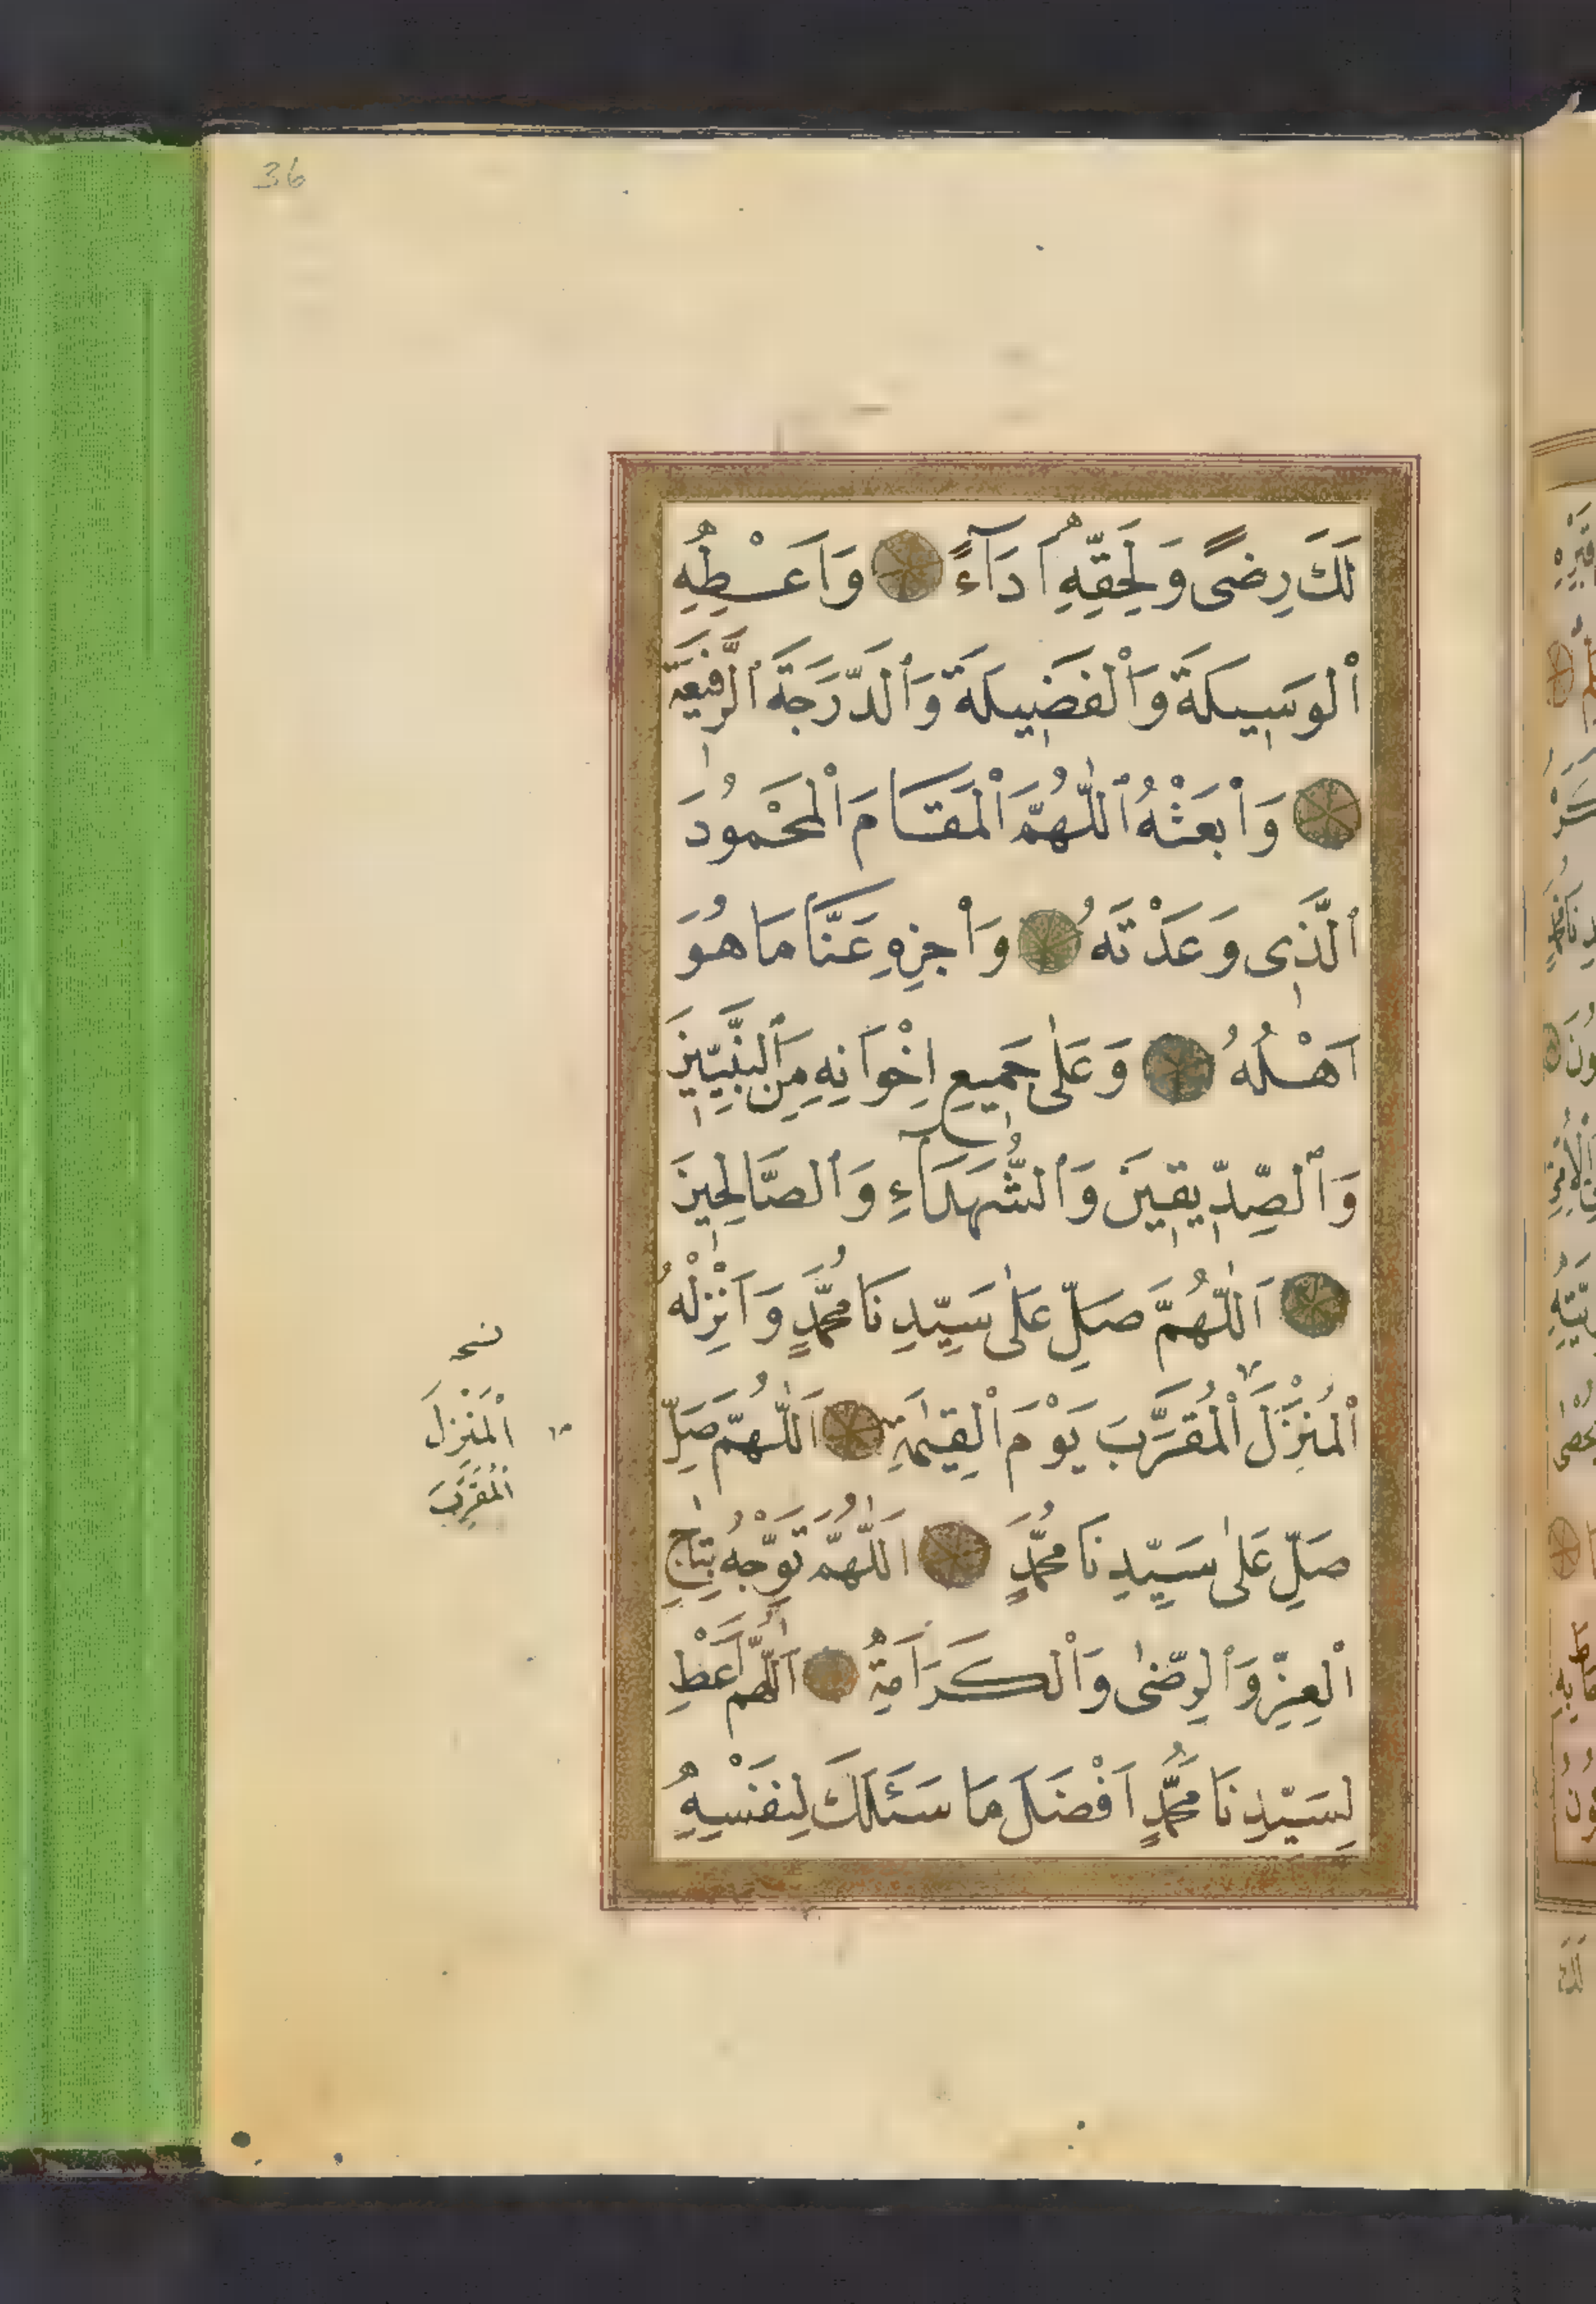 36
لَكَ رِضًى وَلِحَقِّهِ اَدَآءً وَاَعْطِهِ
ٱلْوَسِيلَةَ وَٱلْفَضِيلَةَ وَٱلدَّرَجَةَ ٱلرَّفِيعَةَ
وَٱبْعَثْهُ ٱللّٰهُمَّ ٱلْمَقَامَ ٱلْمَحْمُودَ
ٱلَّذِى وَعَدْتَهُ وَٱجْزِهِ عَنَّا مَا هُوَ
اَهْلُهُ وَعَلٰى جَمِيعِ اِخْوَانِهِ مِنَ ٱلنَّبِيِّينَ
وَٱلصِّدِّيقِينَ وَٱلشُّهَدَآءِ وَٱلصَّالِحِينَ
اَللّٰهُمَّ صَلِّ عَلٰى سَيِّدِنَا مُحَمَّدٍ وَاَنْزِلْهُ
ٱلْمُنْزَلَ ٱلْمُقَرَّبَ يَوْمَ ٱلْقِيٰمَةِ اَللّٰهُمَّ صَلِّ
صَلِّ عَلٰى سَيِّدِنَا مُحَمَّدٍ اَللّٰهُمَّ تَوِّجْهُ بِتَاجِ
ٱلْعِزِّ وَٱلرِّضٰى وَٱلْكَرَامَةِ اَللّٰهُمَّ اَعْطِ
لِسَيِّدِنَا مُحَمَّدٍ اَفْضَلَ مَا سَئَلَكَ لِنَفْسِهِ
ٱلْمَنْزِلَ
ٱلْمُقَرَّبَ